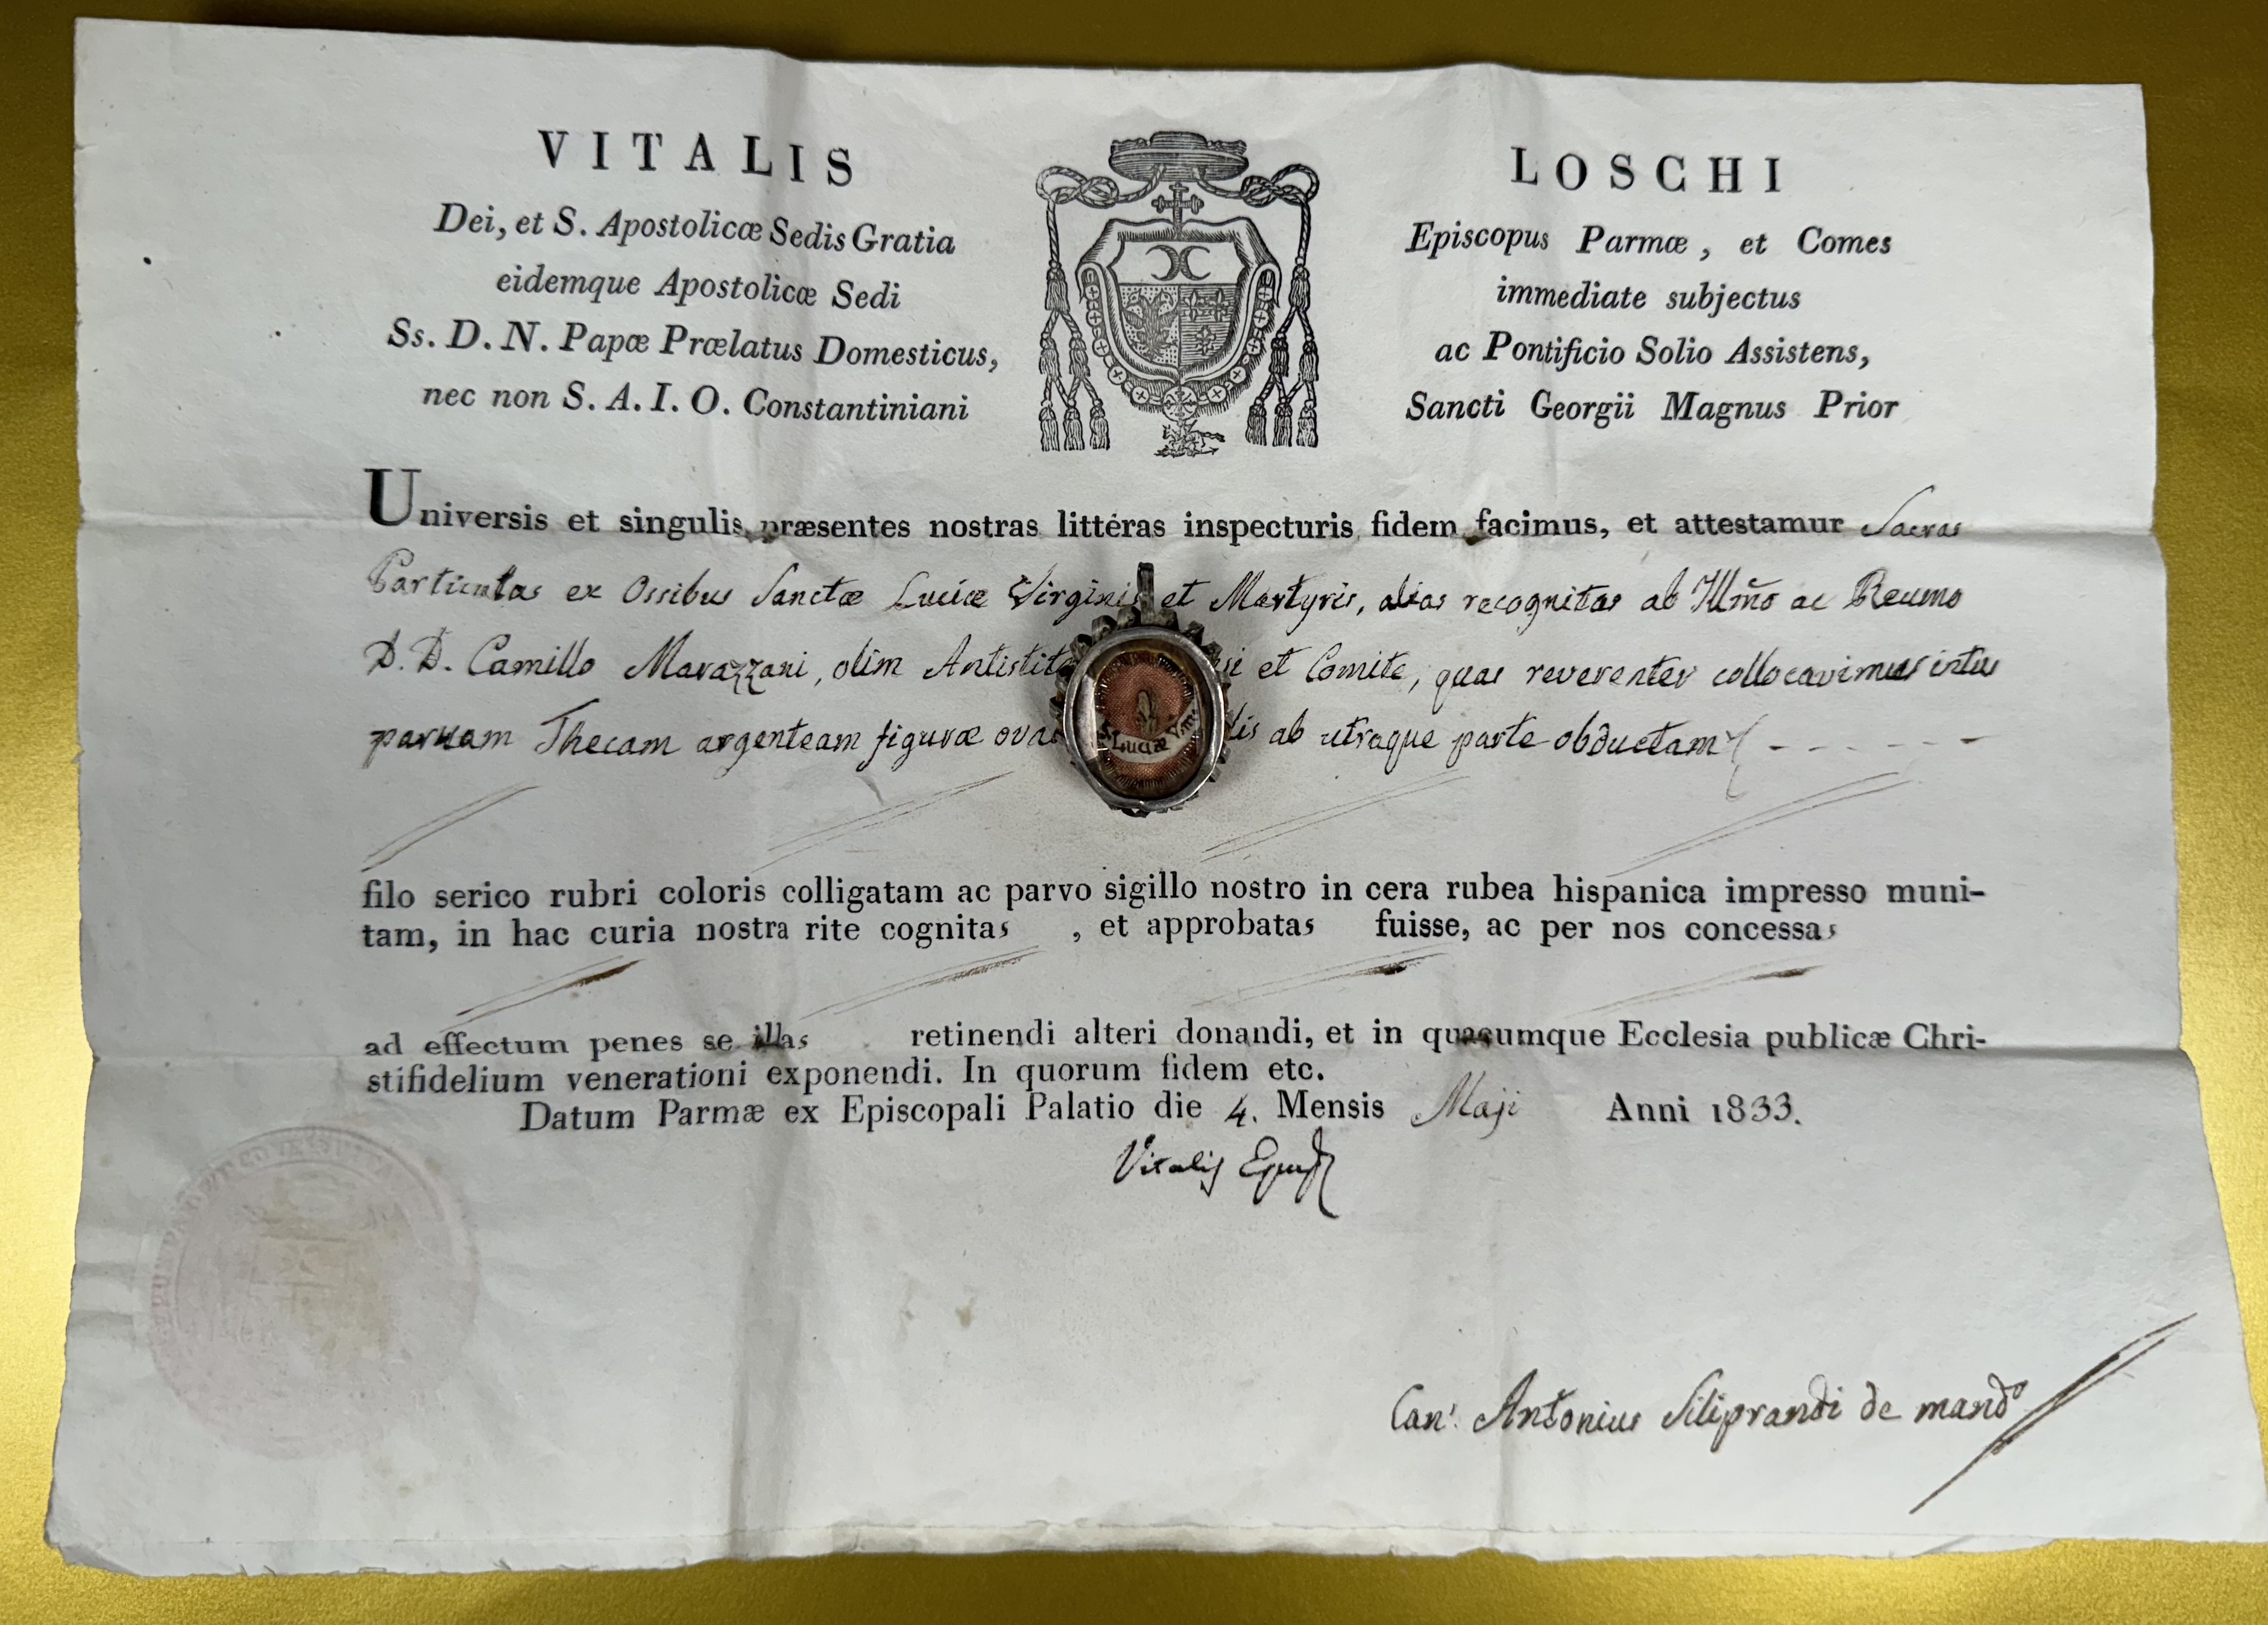 VITALIS LOSCHI
Dei, et S. Apostolicæ Sedis Gratia Episcopus Parmæ, et Comes
eidemque Apostolicæ Sedi immediate subjectus
Ss. D. N. Papæ Prælatus Domesticus, ac Pontificio Solio Assistens,
nec non S. A. I. O. Constantiniani Sancti Georgii Magnus Prior
Universis et singulis præsentes nostras litteras inspecturis fidem facimus, et attestamur Sacras
Particulas ex Ossibus Sanctæ Luciæ Virginis et Martyris, alias recognitas ab Illm̃o ac Reumo
D. D. Camillo Marazzani, olim Antistite et Comite, quas reverenter collocavimus intus
parvam Thecam argenteam figuræ ab utraque parte obductam
S. Luciæ V.M.
filo serico rubri coloris colligatam ac parvo sigillo nostro in cera rubea hispanica impresso muni-
tam, in hac curia nostra rite cognitas, et approbatas fuisse, ac per nos concessas
ad effectum penes se illas retinendi alteri donandi, et in quacumque Ecclesia publicæ Chri-
stifidelium venerationi exponendi. In quorum fidem etc.
Datum Parmæ ex Episcopali Palatio die 4. Mensis Maji Anni 1833.
Vitalis
Can.' Antonius Siliprandi de mand.o